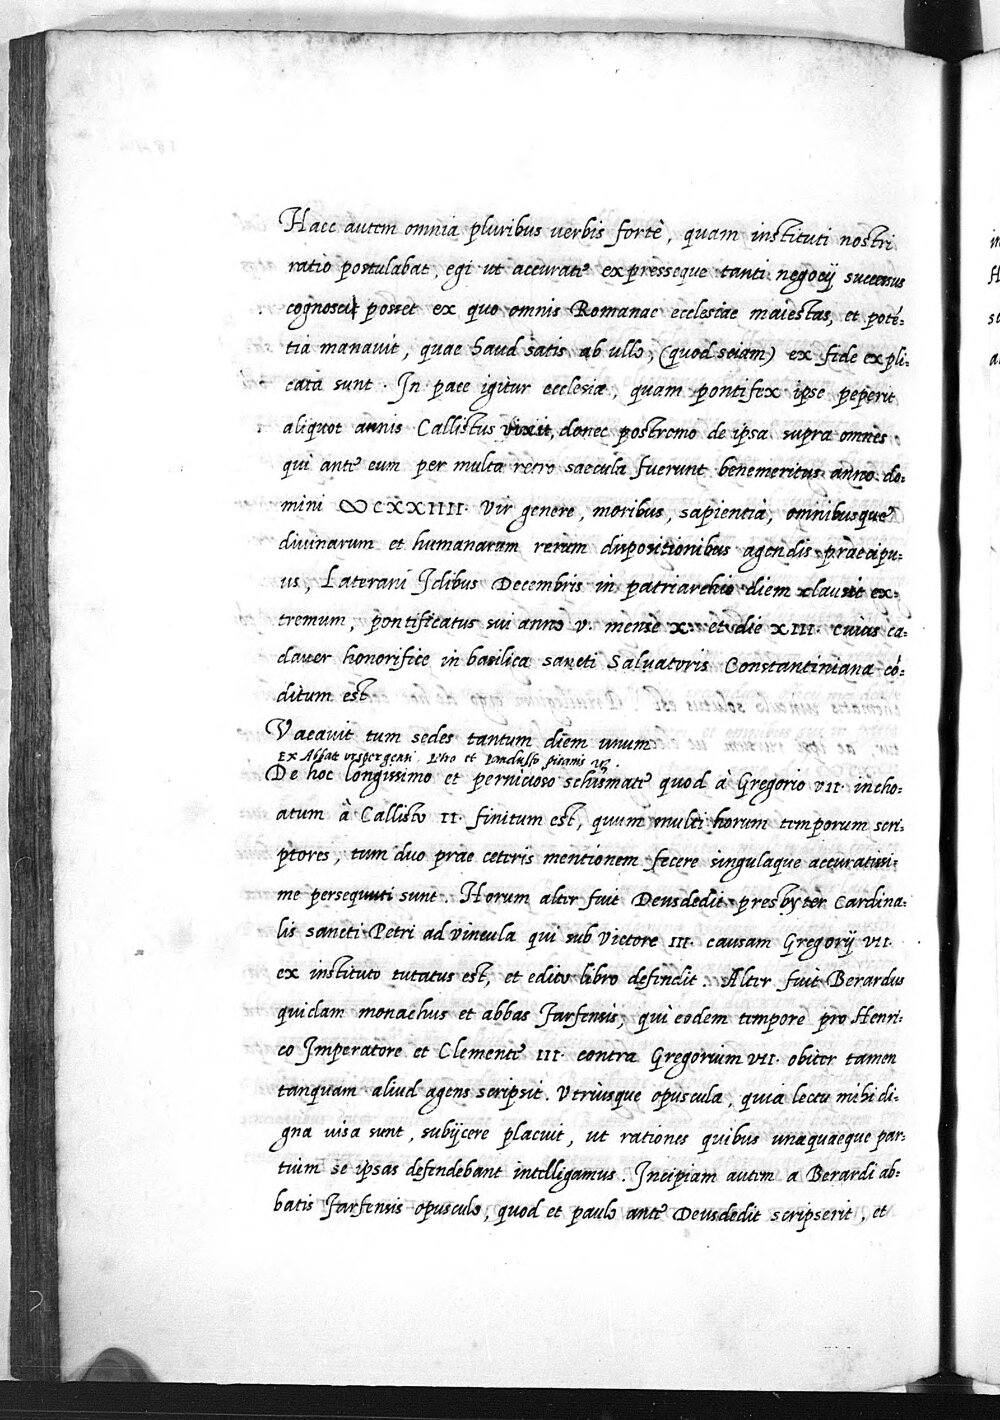 Haec autem omnia pluribus verbis fortè, quam instituti nostri
ratio postulabat, egi ut accurate expresseque tanti negocij successus
cognosci posset ex quo omnis Romanae ecclesiae maiestas, et potē=
tia manavit, quae haud satis ab ullo, (quod sciam) ex fide expli=
cata sunt. In pace igitur ecclesiae, quam pontifex ipse peperit
aliquot annis Callistus vixit, donec postremo de ipsa supra omnes
qui ante eum per multa retro saecula fuerunt benemeritus anno do=
mini ∞CXXIIII. vir genere, moribus, sapientia, omnibusque
divinarum et humanarum rerum dispositionibus agendis praecipu=
us, Laterani Idibus Decembris in patriarchio diem clausit ex=
tremum, pontificatus sui anno v. mense x. et die XIII. cuius ca=
daver honorifice in basilica sancti Salvatoris Constantiniana cō=
ditum est.
Vacavit tum sedes tantum diem unum
Ex Abbat urspergensi Pisanis
De hoc longissimo et pernicioso schismate quod à Gregorio VII. incho=
atum à Callisto II. finitum est, quum multi horum temporum scri=
ptores, tum duo prae ceteris mentionem fecere singulaque accuratissi=
me persequuti sunt. Horum alter fuit Deusdedit presbyter Cardina=
lis sancti Petri ad vincula qui sub Victore III. causam Gregorij VII.
ex instituto tutatus est, et edito libro defendit. Alter fuit Berardus
quidam monachus et abbas Farfensis, qui eodem tempore pro Henri=
co Imperatore et Clemente III. contra Gregorium VII. obiter tamen
tanquam aliud agens scripsit. Utriusque opuscula, quia lectu mihi di=
gna visa sunt, subijcere placuit, ut rationes quibus unaquaeque par=
tium se ipsas defendebant intelligamus. Incipiam autem a Berardi ab=
batis Farfensis opusculo, quod et paulo ante Deusdedit scripserit, et